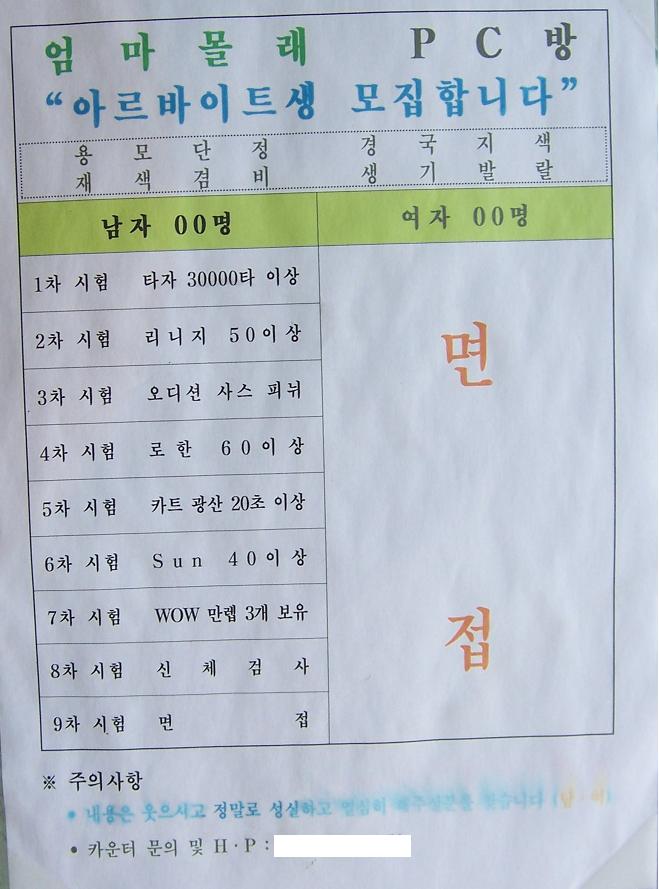 엄마몰래 PC방
“아르바이트생 모집합니다”
용모단정 경국지색
재색겸비 생기발랄
남자 00명 여자 00명
1차 시험 타자 30000타 이상
2차 시험 리니지 50이상
3차 시험 오디션 사스 피뉘
4차 시험 로한 60이상
5차 시험 카트 광산 20초 이상
6차 시험 Sun 40이상
7차 시험 WOW 만렙 3개 보유
8차 시험 신체검사
9차 시험 면접
면
접
※ 주의사항
• 내용은 웃으시고 정말로 성실하고 열심히 해주실분을 찾습니다 (남·여)
• 카운터 문의 및 H·P :